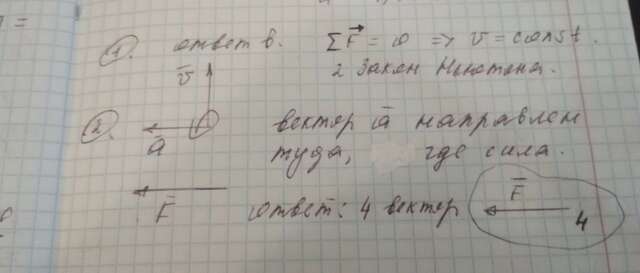 1. ответ в. ΣF⃗ = 0 => v = const.
2 Закон Ньютона.
v̄
2. вектор ā направлен
ā туда, где сила.
F̄ ответ: 4 вектор F̄ 4